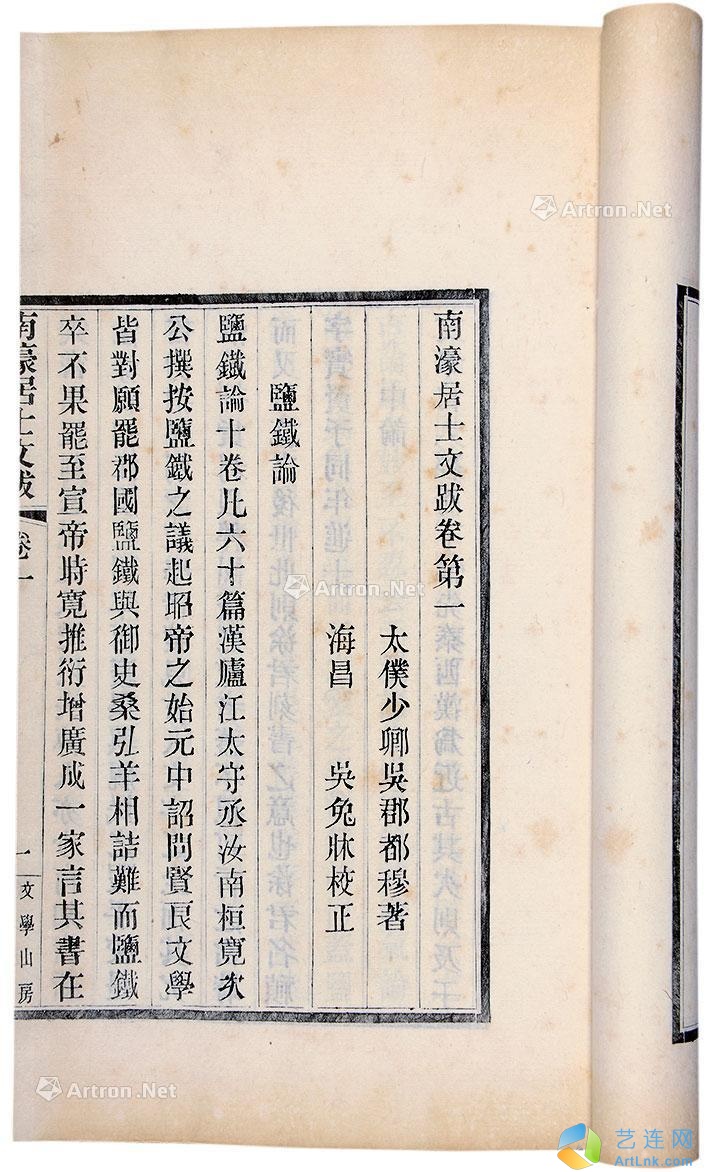 南濠居士文跋卷第一
太僕少卿吳郡都穆著
海昌 吳兔牀校正
鹽鐵論
鹽鐵論十卷凡六十篇漢廬江太守丞汝南桓寬次
公撰按鹽鐵之議起昭帝之始元中詔問賢良文學
皆對願罷郡國鹽鐵與御史桑弘羊相詰難而鹽鐵
卒不果罷至宣帝時寬推衍增廣成一家言其書在
南濠居士文跋 卷一 一 文學山房
Artron.Net
Artron.Net
Artron.Net
艺连网
ArtLnk.com